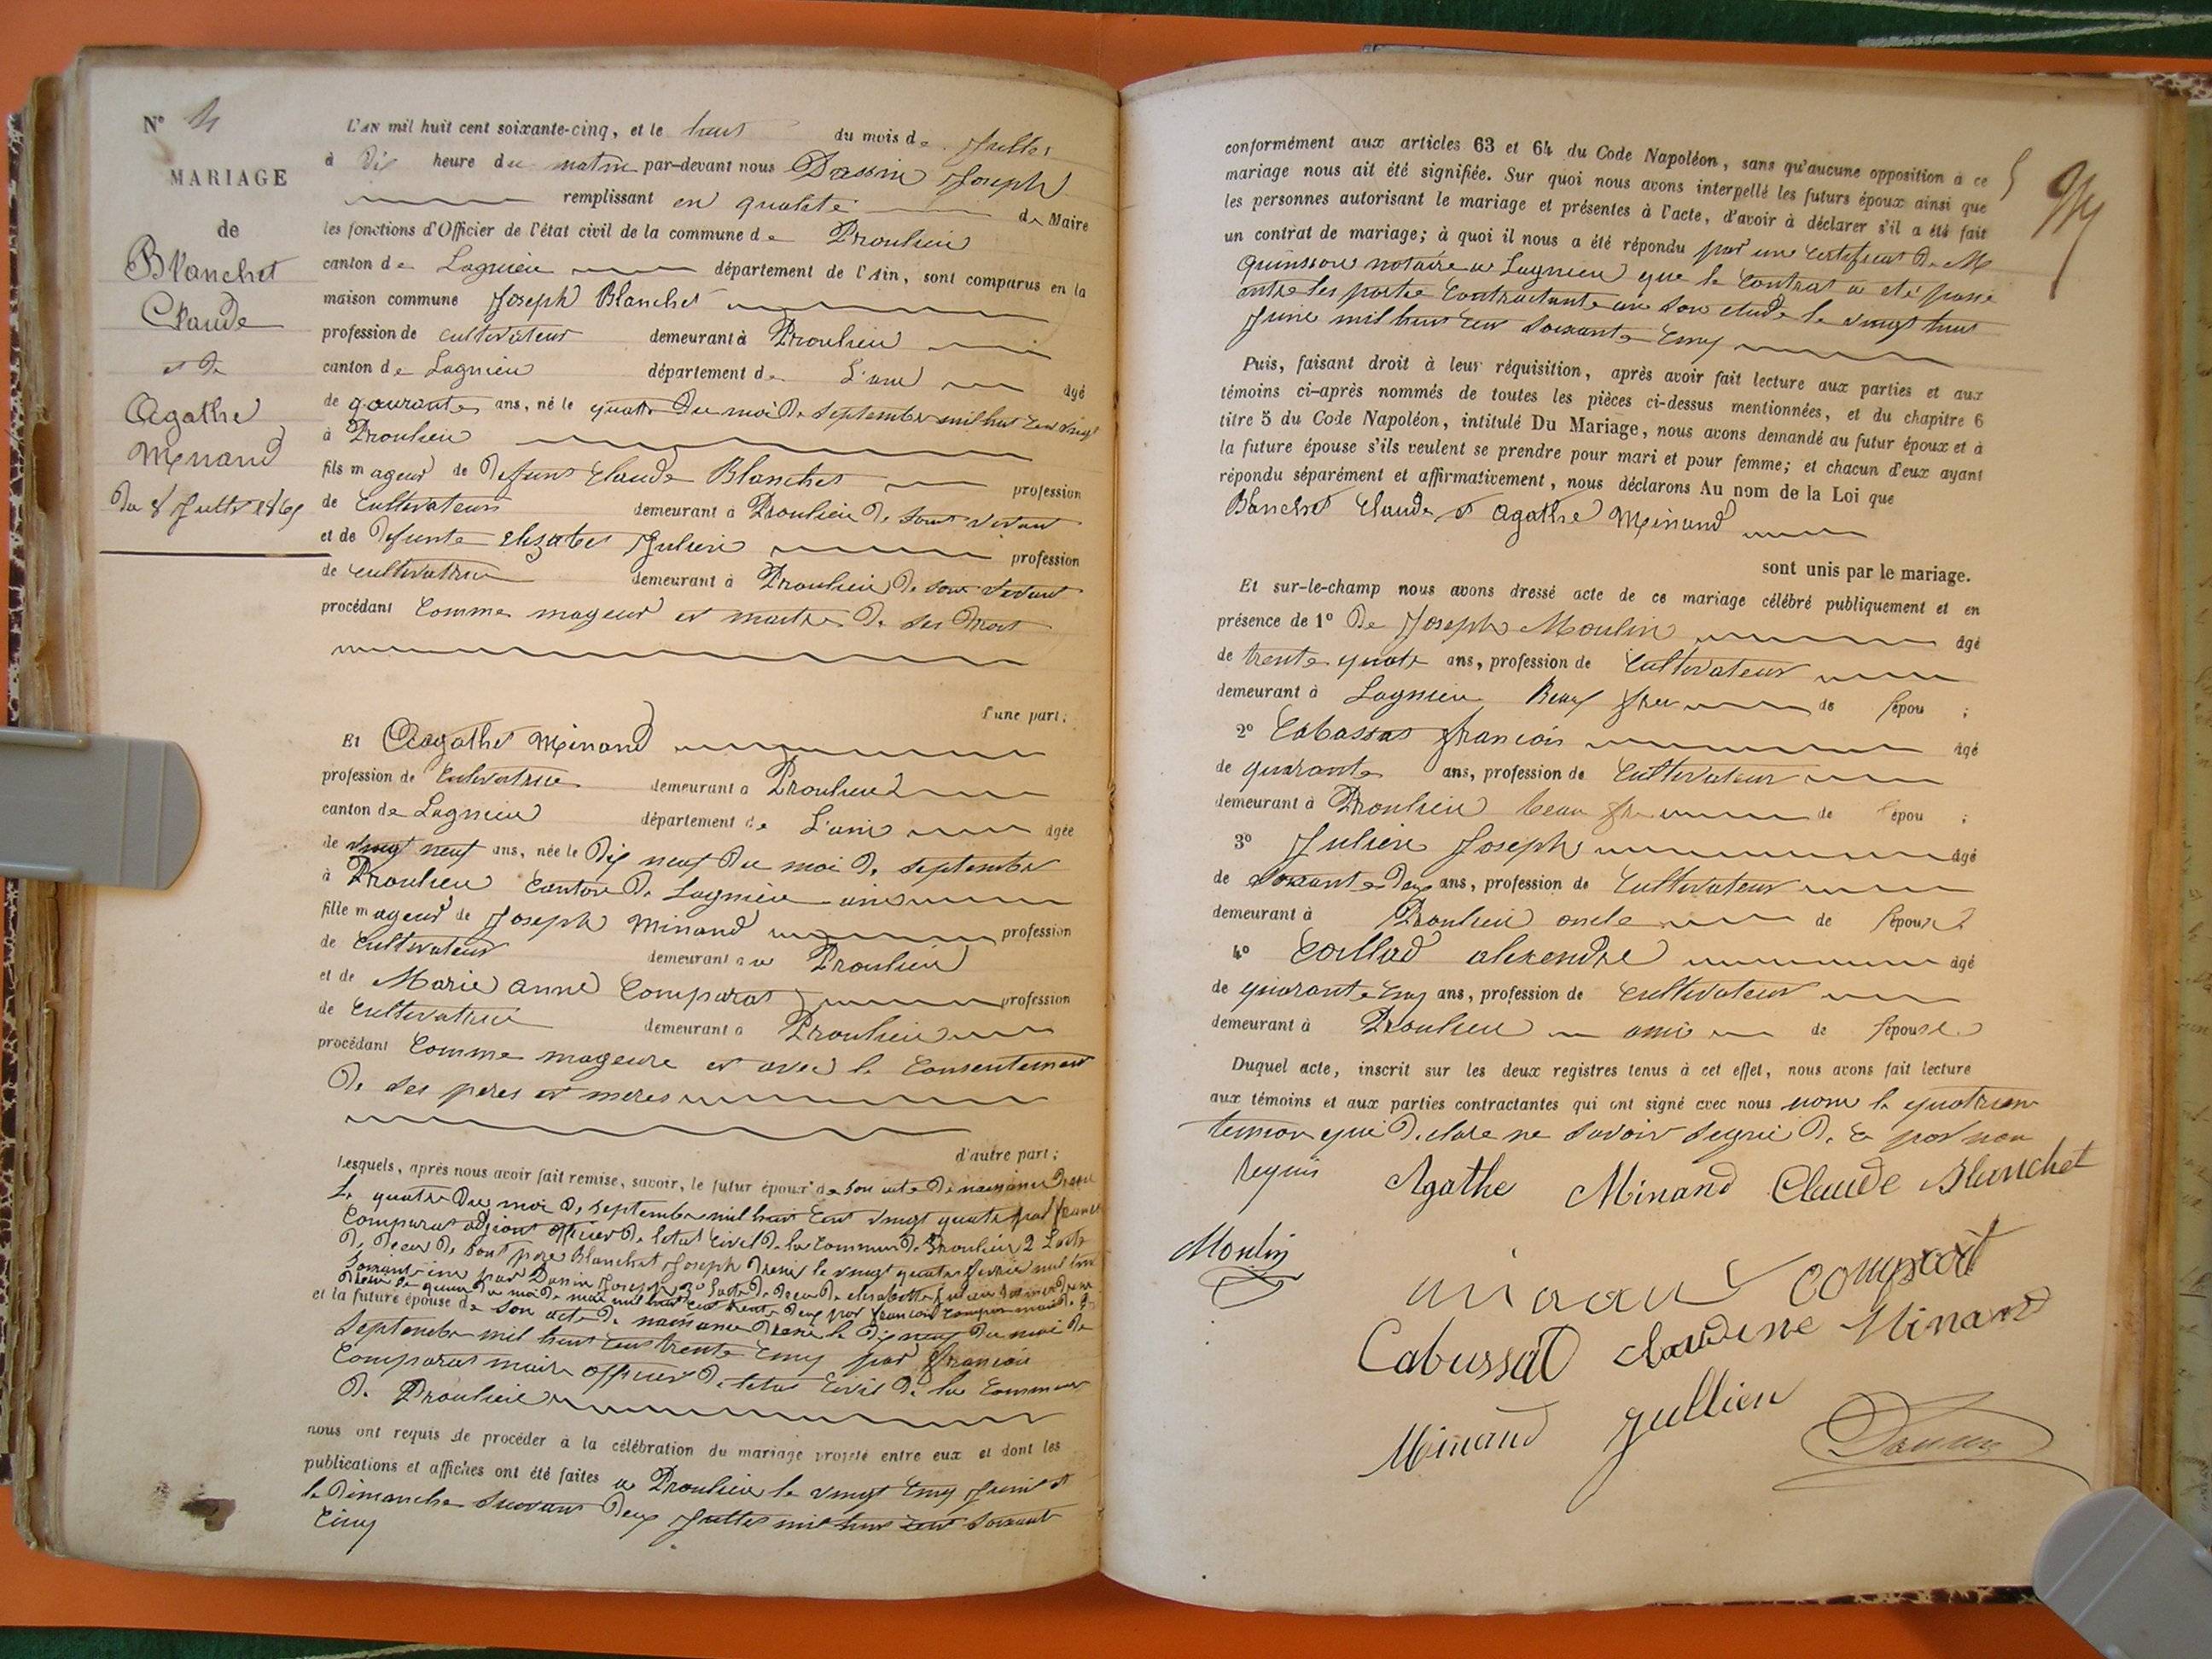 N° 4
MARIAGE
de
Blanchet
Claude
et de
Agathe
Minand
Du 8 Juillet 1865
L'AN mil huit cent soixante-cinq, et le huit du mois de Juillet
à Dix heure du matin par-devant nous Dassin Joseph
remplissant en qualité de Maire
les fonctions d'Officier de l'état civil de la commune de Proulieu
canton de Lagnieu département de l'Ain, sont comparus en la
maison commune Joseph Blanchet
profession de cultivateur demeurant à Proulieu
canton de Lagnieu département de L'ain âgé
de quarante ans, né le quatre Du moi De septembre mil huit Cent vingt
à Proulieu
fils mageur de Defunt Claude Blanchet profession
de Cultivateur demeurant à Proulieu De sont vivant
et de Defunte elizabet Julien profession
de cultivatrice demeurant à Proulieu De son vivant
procédant Comme mageur et maitre De ses Droit
d'une part;
Et Agathe Minand
profession de Cultivatrice demeurant à Proulieu
canton de Lagnieu département de L'ain âgée
de vingt neuf ans, née le Dix neuf Du moi De septembre
à Proulieu Canton De Lagnieu ain
fille mageur de Joseph Minand profession
de Cultivateur demeurant à a Proulieu
et de Marie anne Comparat profession
de Cultivatrice demeurant à Proulieu
procédant Comme mageure et avec le Consentement
De ses peres et meres
d'autre part;
Lesquels, après nous avoir fait remise, savoir, le futur époux de son acte De naissance Dressé
Le quatre Du moi De septembre mil huit Cent vingt quatre par
Comparat adjoint officier De letat Civil De la Commune De Proulieu 2 Lacte
De deces De sont pere Blanchet Joseph Dressé le vingt quatre
par Dassin Joseph 3° Lacte De deces De elisabette Julien
Du moi De mai mil huit cent trente Deux par francois
et la future épouse de son acte De naissance Dressé le Dix neuf Du moi De
Septembre mil huit Cent trente Cinq par francois
Comparat maire officier De letat Civil De la Commune
De Proulieu
nous ont requis de procéder à la célébration du mariage projeté entre eux et dont les
publications et affiches ont été faites a Proulieu le vingt Cinq Juin et
le Dimanche suivant Deux Juillet mil huit cent soixante
Cinq
conformément aux articles 63 et 64 du Code Napoléon, sans qu'aucune opposition à ce
mariage nous ait été signifiée. Sur quoi nous avons interpellé les futurs époux ainsi que
les personnes autorisant le mariage et présentes à l'acte, d'avoir à déclarer s'il a été fait
un contrat de mariage; à quoi il nous a été répondu par une Certificat De M
Quinsson notaire a Lagnieu que le Contrat a eté passé
entre les partie Contractante en son etude le vingt huit
Juin mil huit Cent soixante Cinq
Puis, faisant droit à leur réquisition, après avoir fait lecture aux parties et aux
témoins ci-après nommés de toutes les pièces ci-dessus mentionnées, et du chapitre 6
titre 5 du Code Napoléon, intitulé Du Mariage, nous avons demandé au futur époux et à
la future épouse s'ils veulent se prendre pour mari et pour femme; et chacun d'eux ayant
répondu séparément et affirmativement, nous déclarons Au nom de la Loi que
Blanchet Claude et Agathe Minand
sont unis par le mariage.
Et sur-le-champ nous avons dressé acte de ce mariage célébré publiquement et en
présence de 1° De Joseph Moulin âgé
de trente quatre ans, profession de Cultivateur
demeurant à Lagnieu Beau frere de l'épou ;
2° Cabassat francois âgé
de quarante ans, profession de Cultivateur
demeurant à Proulieu beau frere de l'épou ;
3° Julien Joseph âgé
de soixante Deux ans, profession de Cultivateur
demeurant à Proulieu oncle de l'époux
4° Collad alexendre âgé
de quarante Cinq ans, profession de Cultivateur
demeurant à Proulieu ami de l'épouse
Duquel acte, inscrit sur les deux registres tenus à cet effet, nous avons fait lecture
aux témoins et aux parties contractantes qui ont signé avec nous non le quatrieme
temoin qui Declare ne savoir signé De ce par nou
requis Agathe Minand Claude Blanchet
Moulin
Minand Comparat
Cabussat claudine Minand
Minand Jullien
Dassin